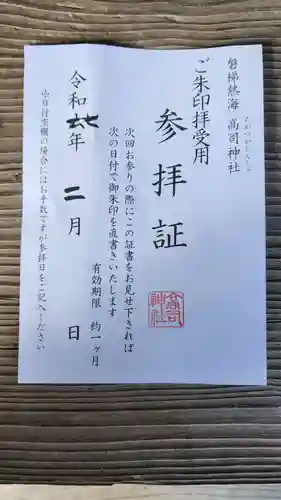 磐梯熱海 高司神社
たかつかさじんじゃ
ご朱印拝受用
参拝証
次回お参りの際にこの証書をお見せ下されば
次の日付で御朱印を直書きいたします
有効期限 約一ヶ月
高司
神社
令和 年 二月 日
※日付空欄の場合にはお手数ですが参拝日をご記入ください